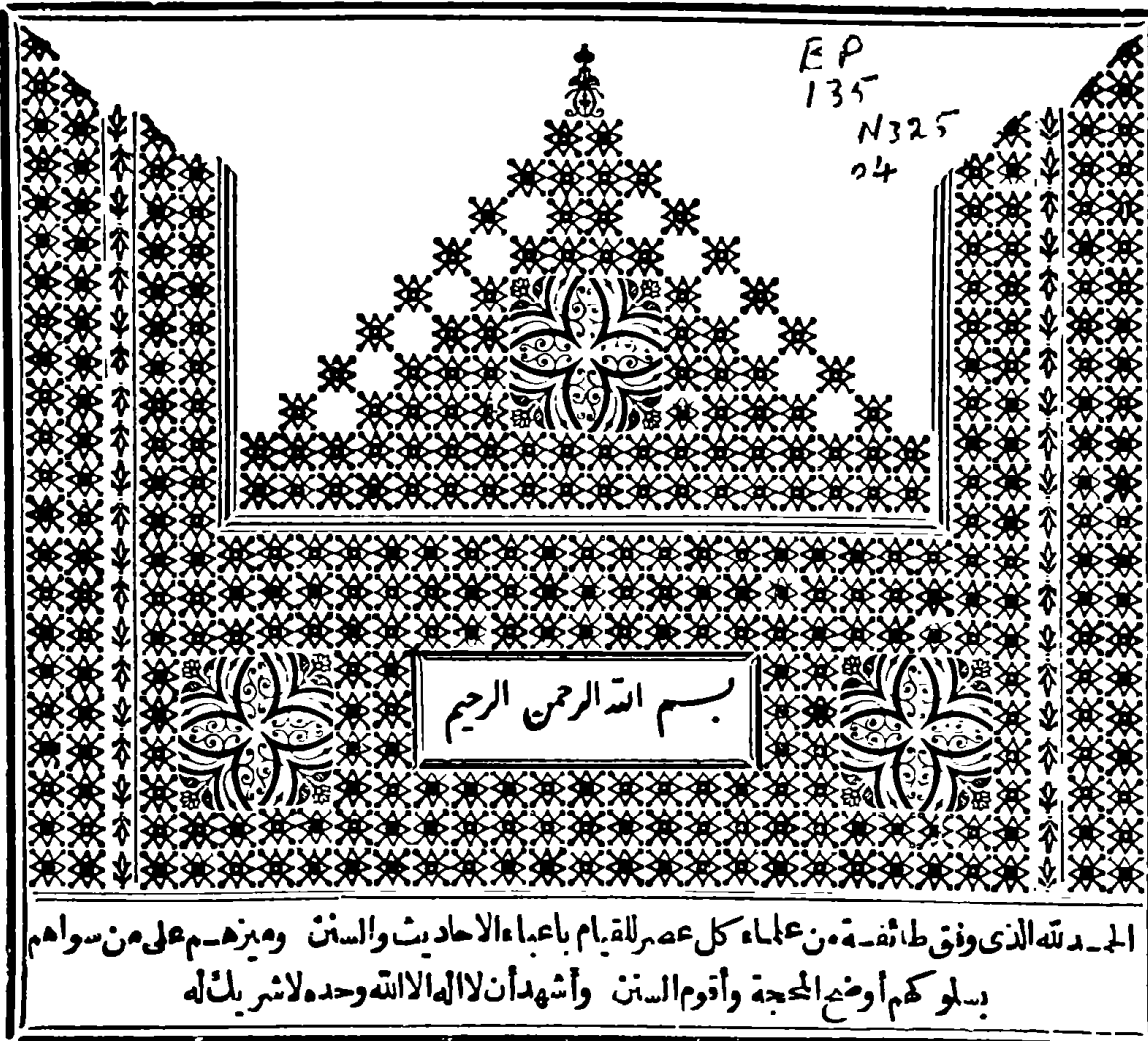 EP
135
N325
04
بسم الله الرحمن الرحيم
الحمد لله الذى وفق طائفة من علماء كل عصر للقيام باعباء الاحاديث والسنن وميزهم على من سواهم
بسلوكهم أوضح المحجة وأقوم السنن وأشهد أن لا اله الا الله وحده لا شريك له